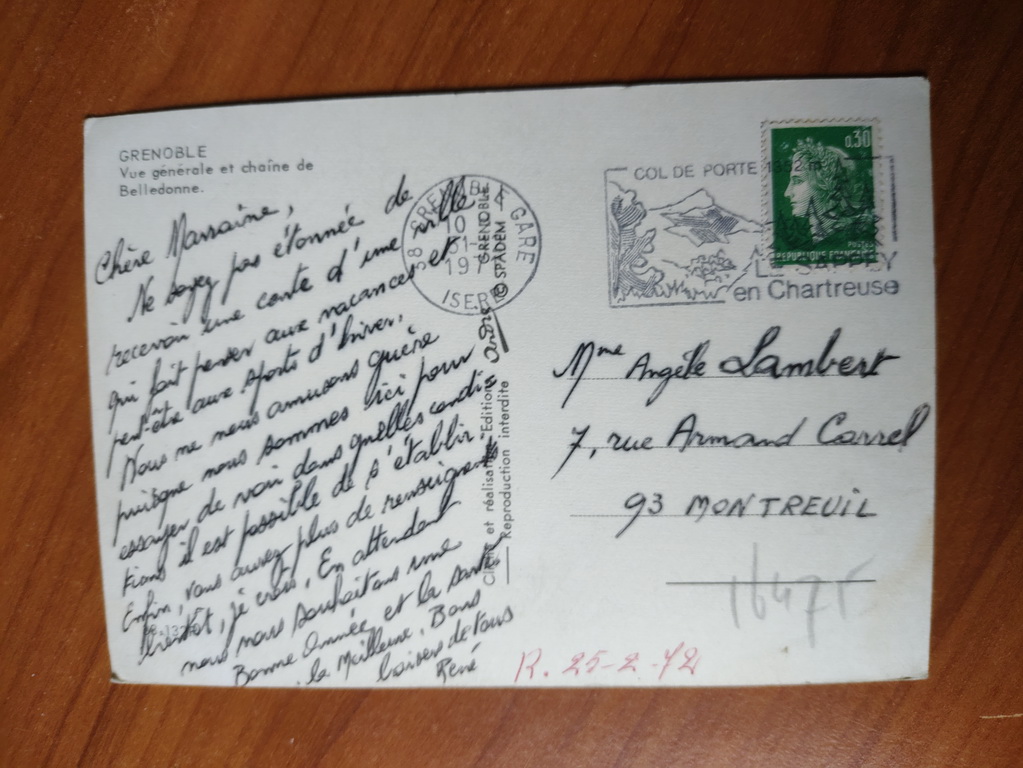 GRENOBLE
Vue générale et chaîne de
Belledonne.
Chère Marraine,
Ne soyez pas étonnée de
recevoir une carte d'une ville
qui fait penser aux vacances et
peut-être aux sports d'hiver.
Nous ne nous amusons guère
puisque nous sommes ici pour
essayer de voir dans quelles condi
tions il est possible de s'établir
Enfin, vous aurez plus de renseignements
bientôt, je crois. En attendant
nous vous souhaitons une
Bonne Année et la santé
la Meilleure. Bons
baisers de tous
René
38 GRENOBLE GARE
10
31-
197
ISERE
GRENOBLE
© SPADEM
Cliché et réalisation "Editions André"
Reproduction interdite
COL DE PORTE
LE SAPPEY
en Chartreuse
0,30
POSTES
REPUBLIQUE FRANCAISE
Mme Angèle Lambert
7, rue Armand Carrel
93 MONTREUIL
R. 25-2-72